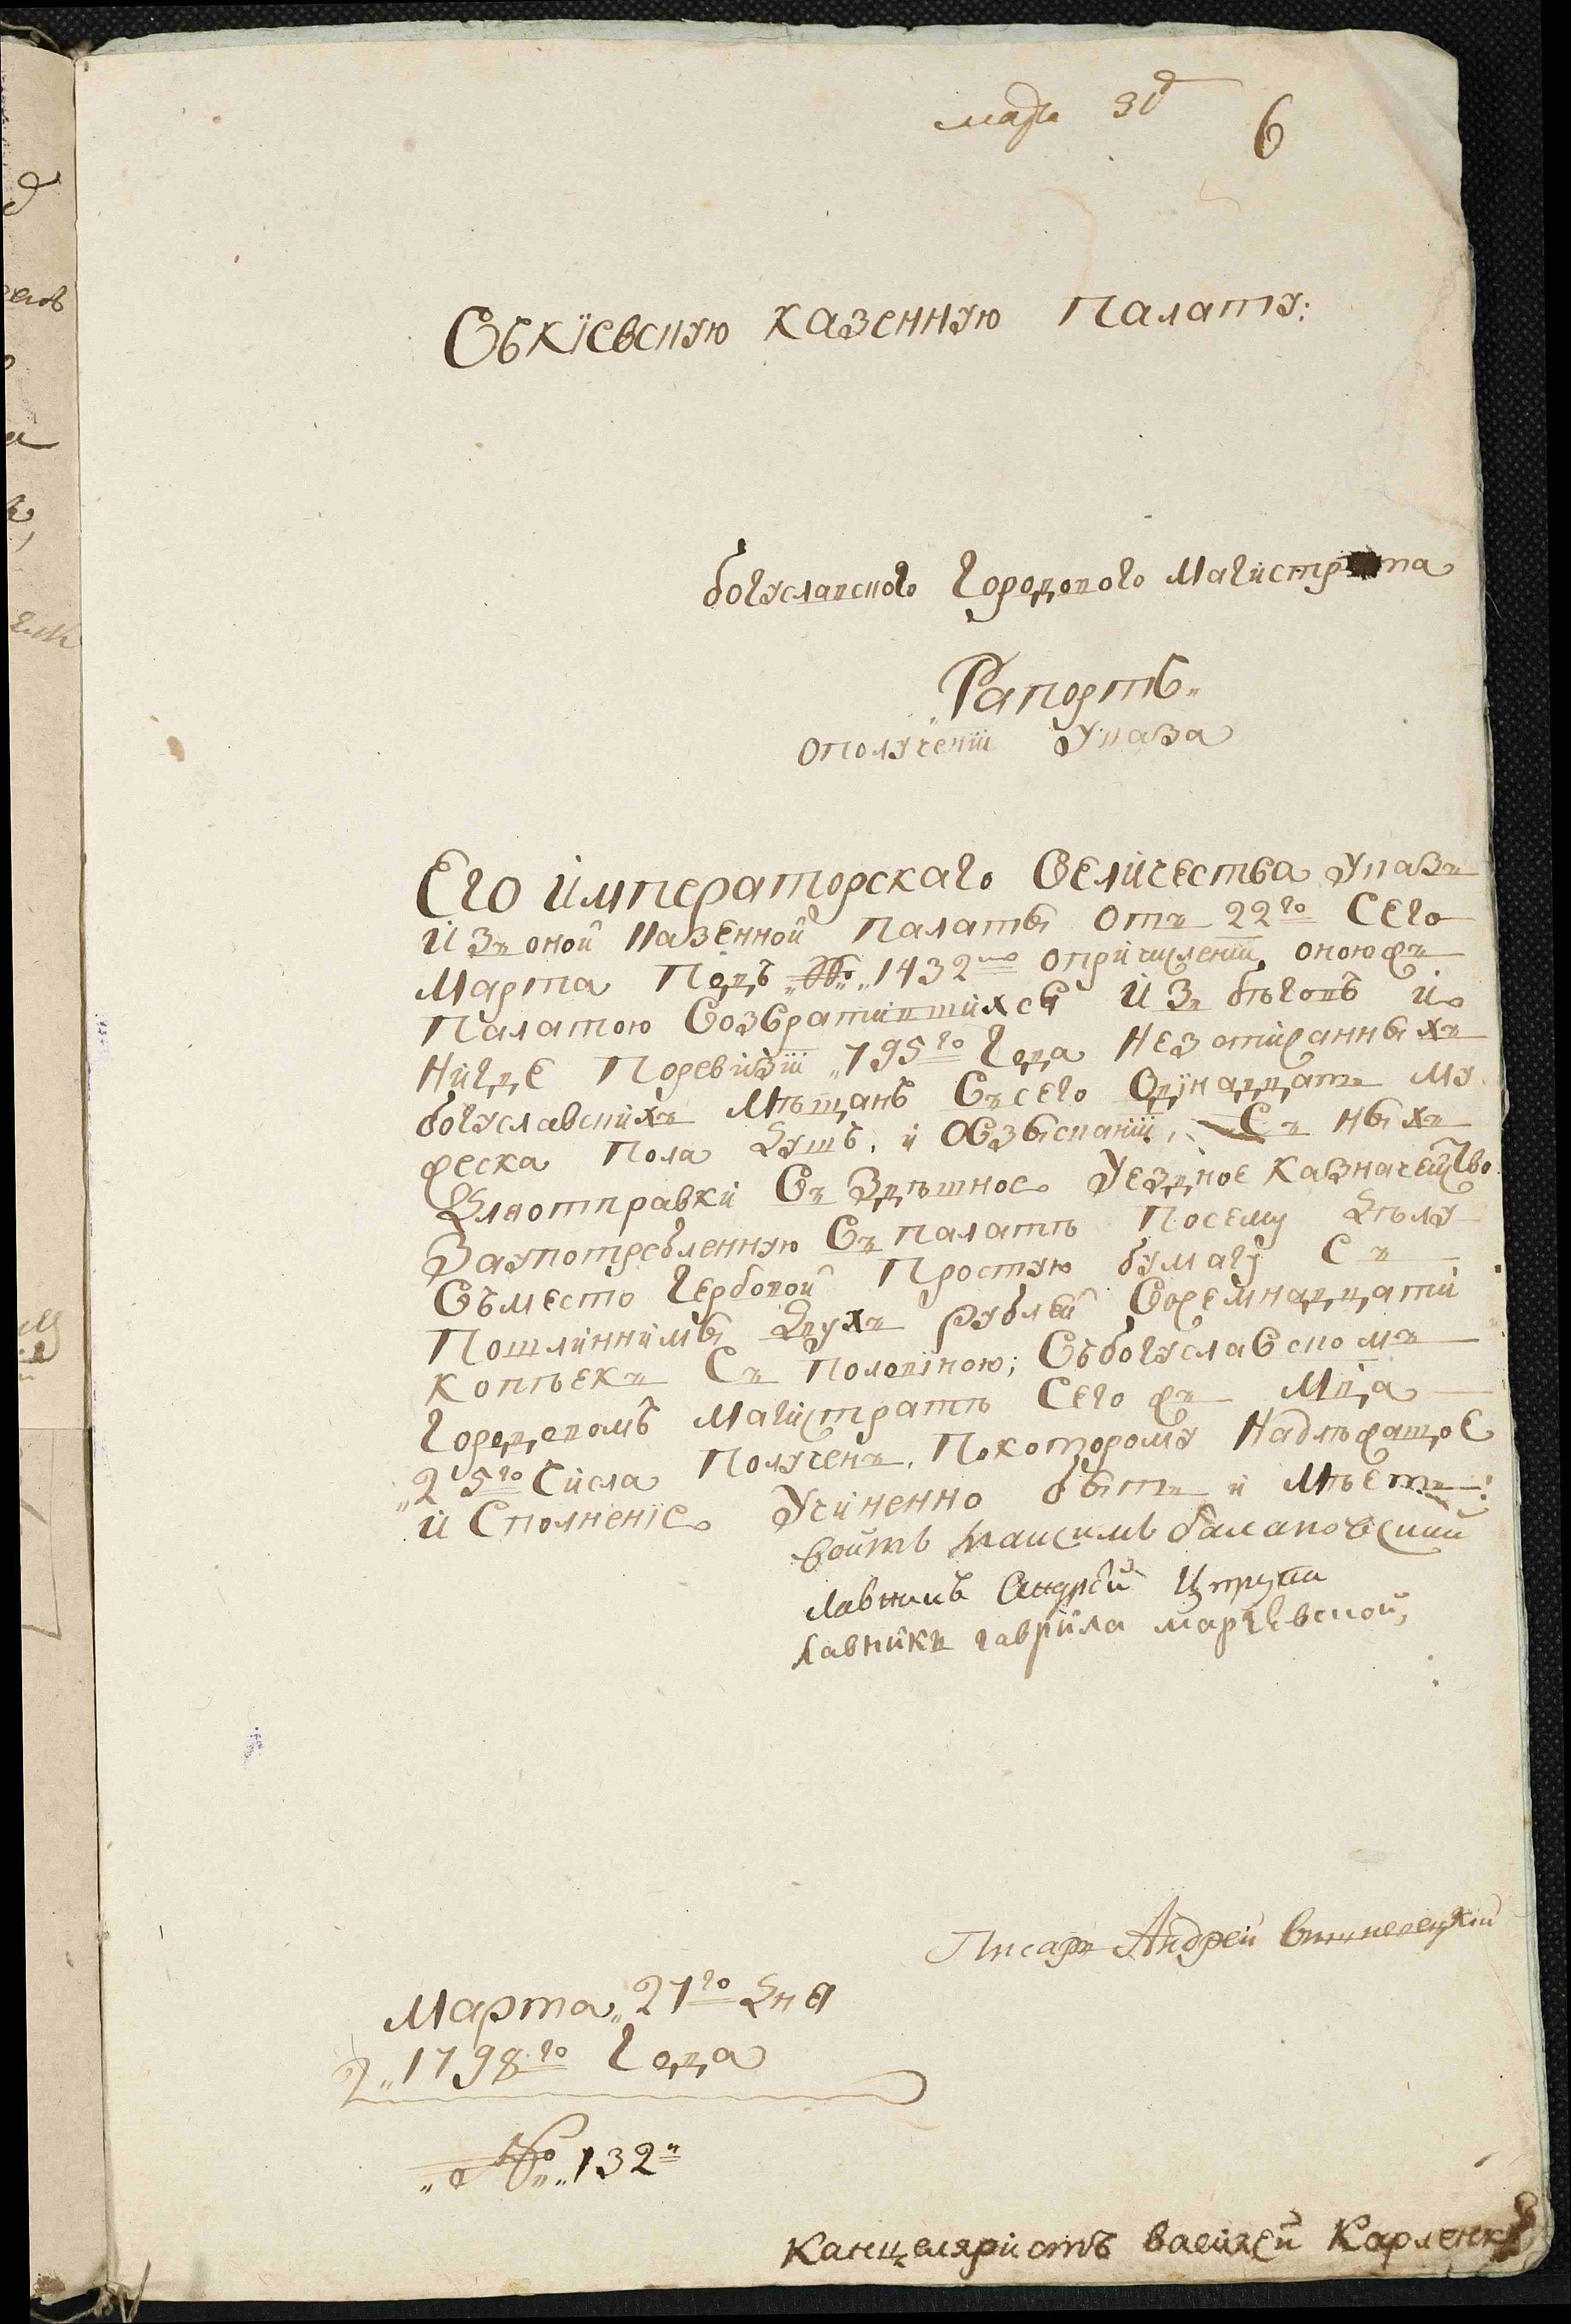 6
Въ Кіевскую казенную Палату:
богуславского Городового Магистрата
Рапортъ
о получении Указа
Его Императорскаго Величества Указъ
изъ оной Казенной Палаты отъ 22го Сего
Марта Подъ № 1432мъ опричислении, оноюжъ
Палатою Возвратившихся Изъ бѣговъ и
нигде Поревизии 795го Года незаписанныхъ
богуславскихъ мѣщанъ Всего Одинадцать му
жеска Пола Душъ, и Овзыскании, Съ ныхъ
Дляотправки Въ Здѣшное Уездное казначейство
Заупотребленную Въ палатѣ Посему Дѣлу
Въместо Гербовой Простую бумагу Съ
Пошлиннимы Двухъ рублей Восемнадцати
копѣекъ Съ Половиною; Въбогуславскомъ
Городовомъ Магистратѣ Сего жъ Мца
25го Числа Полученъ, Покоторому Надлѣжащое
и Сполнение Учиненно быть имѣетъ:
Войтъ Максимъ балановский
Лавникъ Андрей
Лавникъ гаврила марчевской,
Писарь Андрей
Марта 27го Дня
1798го Года
№ 132
Канцеляристъ Карленко